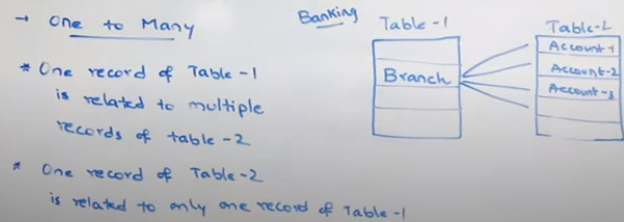 → One to Many
* One record of Table-1
is related to multiple
records of table-2
* One record of Table-2
is related to only one record of Table-1
Banking
Table-1
Branch
Table-2
Account-1
Account-2
Account-3